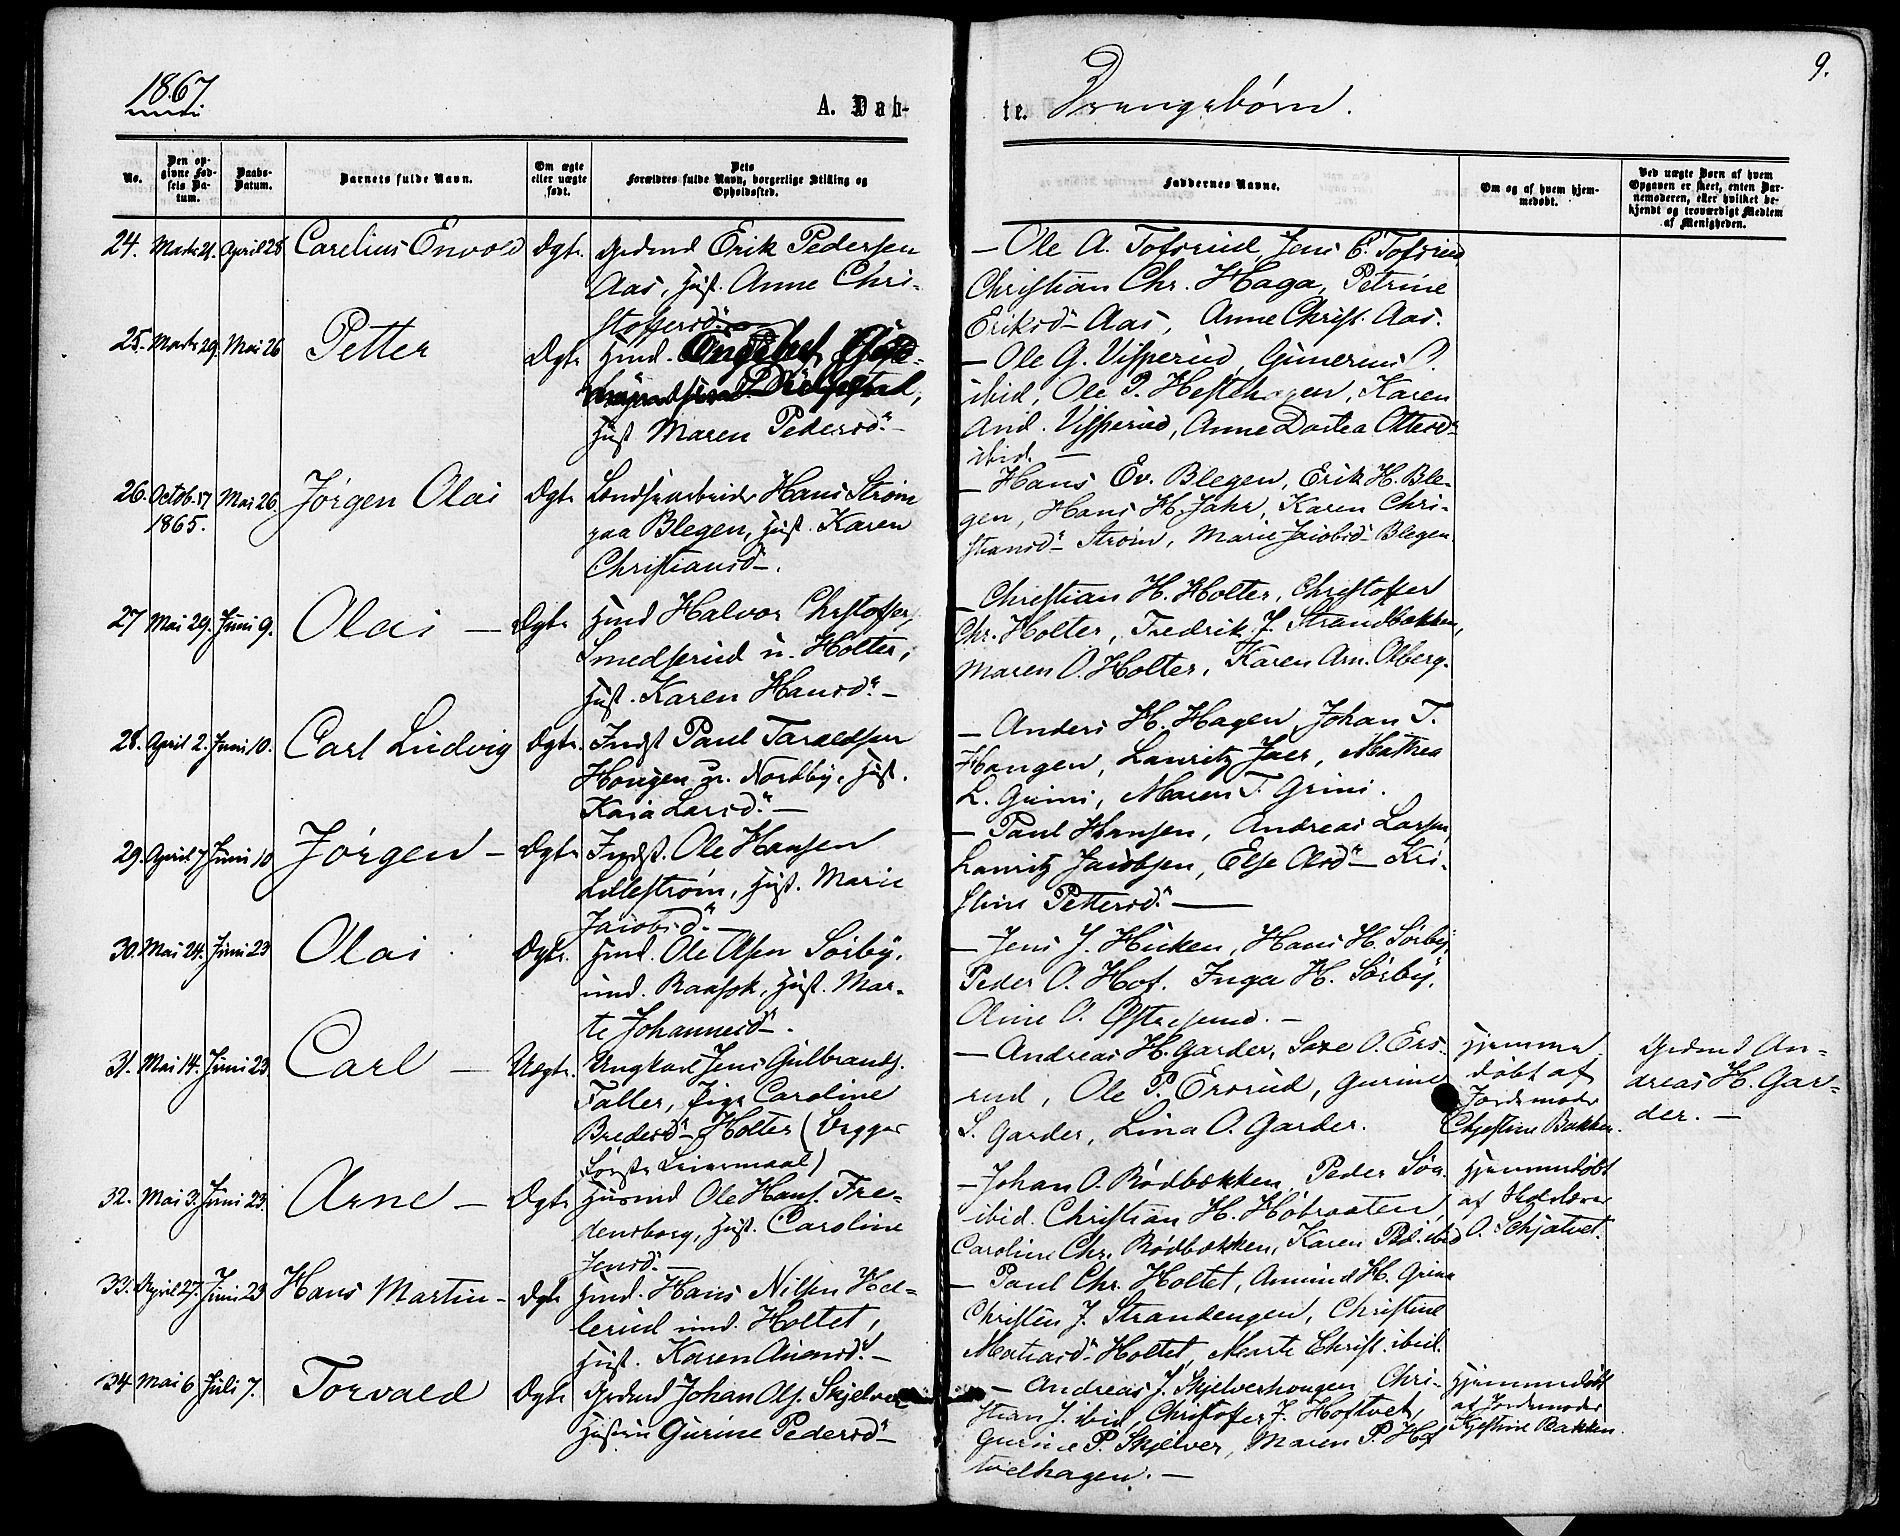 1867
A. Dab-
te. Drengebørn.
9.
No.
Den op-
givne Fød-
sels Da-
tum.
Daabs-
Datum.
Barnets fulde Navn.
Om ægte
eller uægte
født.
Dets
Forældres fulde Navn, borgerlige Stilling og
Opholdssted.
Faddernes Navne.
Om og af hvem hjem-
medøbt.
Ved uægte Børn af hvem
Opgaven er skeet, enten Bar-
nemoderen, eller hvilket be-
kjendt og troværdigt Medlem
af Menigheden.
24. Marts 21. April 28 Carelius Envold Ægte Grdmd Erik Pedersen
Aas, Hust. Anne Chri-
stoffersd.
— Ole A. Tofsrud, Jens E. Tofsrud,
Christian Chr. Haga, Petrine
Eriksd. Aas, Anne Christ. Aas.
25. Marts 29. Mai 26 Petter Ægte Hmd.
Hust Maren Pedersd. —
— Ole G. Visperud, Gunerius
ibid, Ole P. Heftehagen, Karen
And. Visperud, Anne Dortea Ottersd.
ibid. —
26. Octob. 17 Mai 26. Jørgen Olai Ægte Landsarbeider Hans Strøm
1865.
paa Blegen, Hust. Karen
Christiansd.
— Hans Ev. Blegen, Erik H. Ble-
gen, Hans H. Jahr, Karen Chri-
stiansd. Strøm, Marie Jacobsd. Blegen.
27 Mai 29. Juni 9. Olai — Ægte Hmd Halvor Christoffer,
Smedsrud u. Holter,
Hust. Karen Hansd. —
— Christian H. Holter, Christoffer
Chr. Holter, Fredrik J. Strandbakken,
Maren O. Holter, Karen Arn. Olberg.
28. April 2. Juni 10. Carl Ludvig Ægte Indst Paul Taraldsen
Hougen u. Nordby, Hust.
Kaia Larsd. —
— Anders H. Hagen, Johan T.
Haugen, Lauritz Jaer, Mathea
L. Grini, Maren T. Grini.
29. April 7 Juni 10 Jørgen — Ægte Indst. Ole Hansen
Lillestrøm, Hust. Marie
Jacobsd. —
— Paul Hansen, Andreas Larsen,
Lauritz Jacobsen, Else Olsd. Kri-
stine Pettersd. —
30. Mai 24. Juni 23 Olai Ægte. Hmd. Ole Olsen Sørby,
und. Raasok, Hust. Mar-
te Johannesd.
— Jens J. Huken, Hans H. Sørby,
Peder O. Hof. Inga H. Sørby,
Oline O. —
31. Mai 14. Juni 23 Carl — Uægte. Ungkarl Jens Gulbrands.
Faller, Pige Caroline
Bredesd. Holter (Begges
Første Leiermaal)
— Andreas H. Garder, Saxe O. Ers-
rud, Ole P. Ersrud, Gurine
S. Garder, Lina O. Garder.
Hjemme
døbt af
Jordemoder
Chjestine Bakken.
Grdmd An-
dreas H. Gar-
der. —
32. Mai 3. Juni 23. Arne — Ægte Husmd Ole Hans. Fre-
densborg, Hust. Caroline
Jensd. —
— Johan O. Rødbækken, Peder Sør.
ibid. Christian H. Høbraaten,
Caroline Chr. Rødbækken, Karen Ped. ibid
Hjemmedøbt
af Skolelærer
O. Schjatvet.
33. April 27. Juni 23 Hans Martin — Ægte Hmd. Hans Nilsen Hel-
lerud und. Holtet,
Hust. Karen Amundsd. —
— Paul Chr. Holtet, Amund H. Grina
Christen J. Strandengen, Christine
Mathiasd. Holtet, Marte Christ. ibid.
34 Mai 6 Juli 7. Torvald Ægte Grdmd Johan Ols. Skjelver
Hustru Gurine Pedersd. —
— Andreas J. Skjelverhougen Chri-
stian J. ibid, Christoffer J. Hoftvet,
Gurine P. Skjelver, Maren P. Hof
tvethagen. —
Hjemmedøbt
af Jordemoder
Kjestine Bakken.